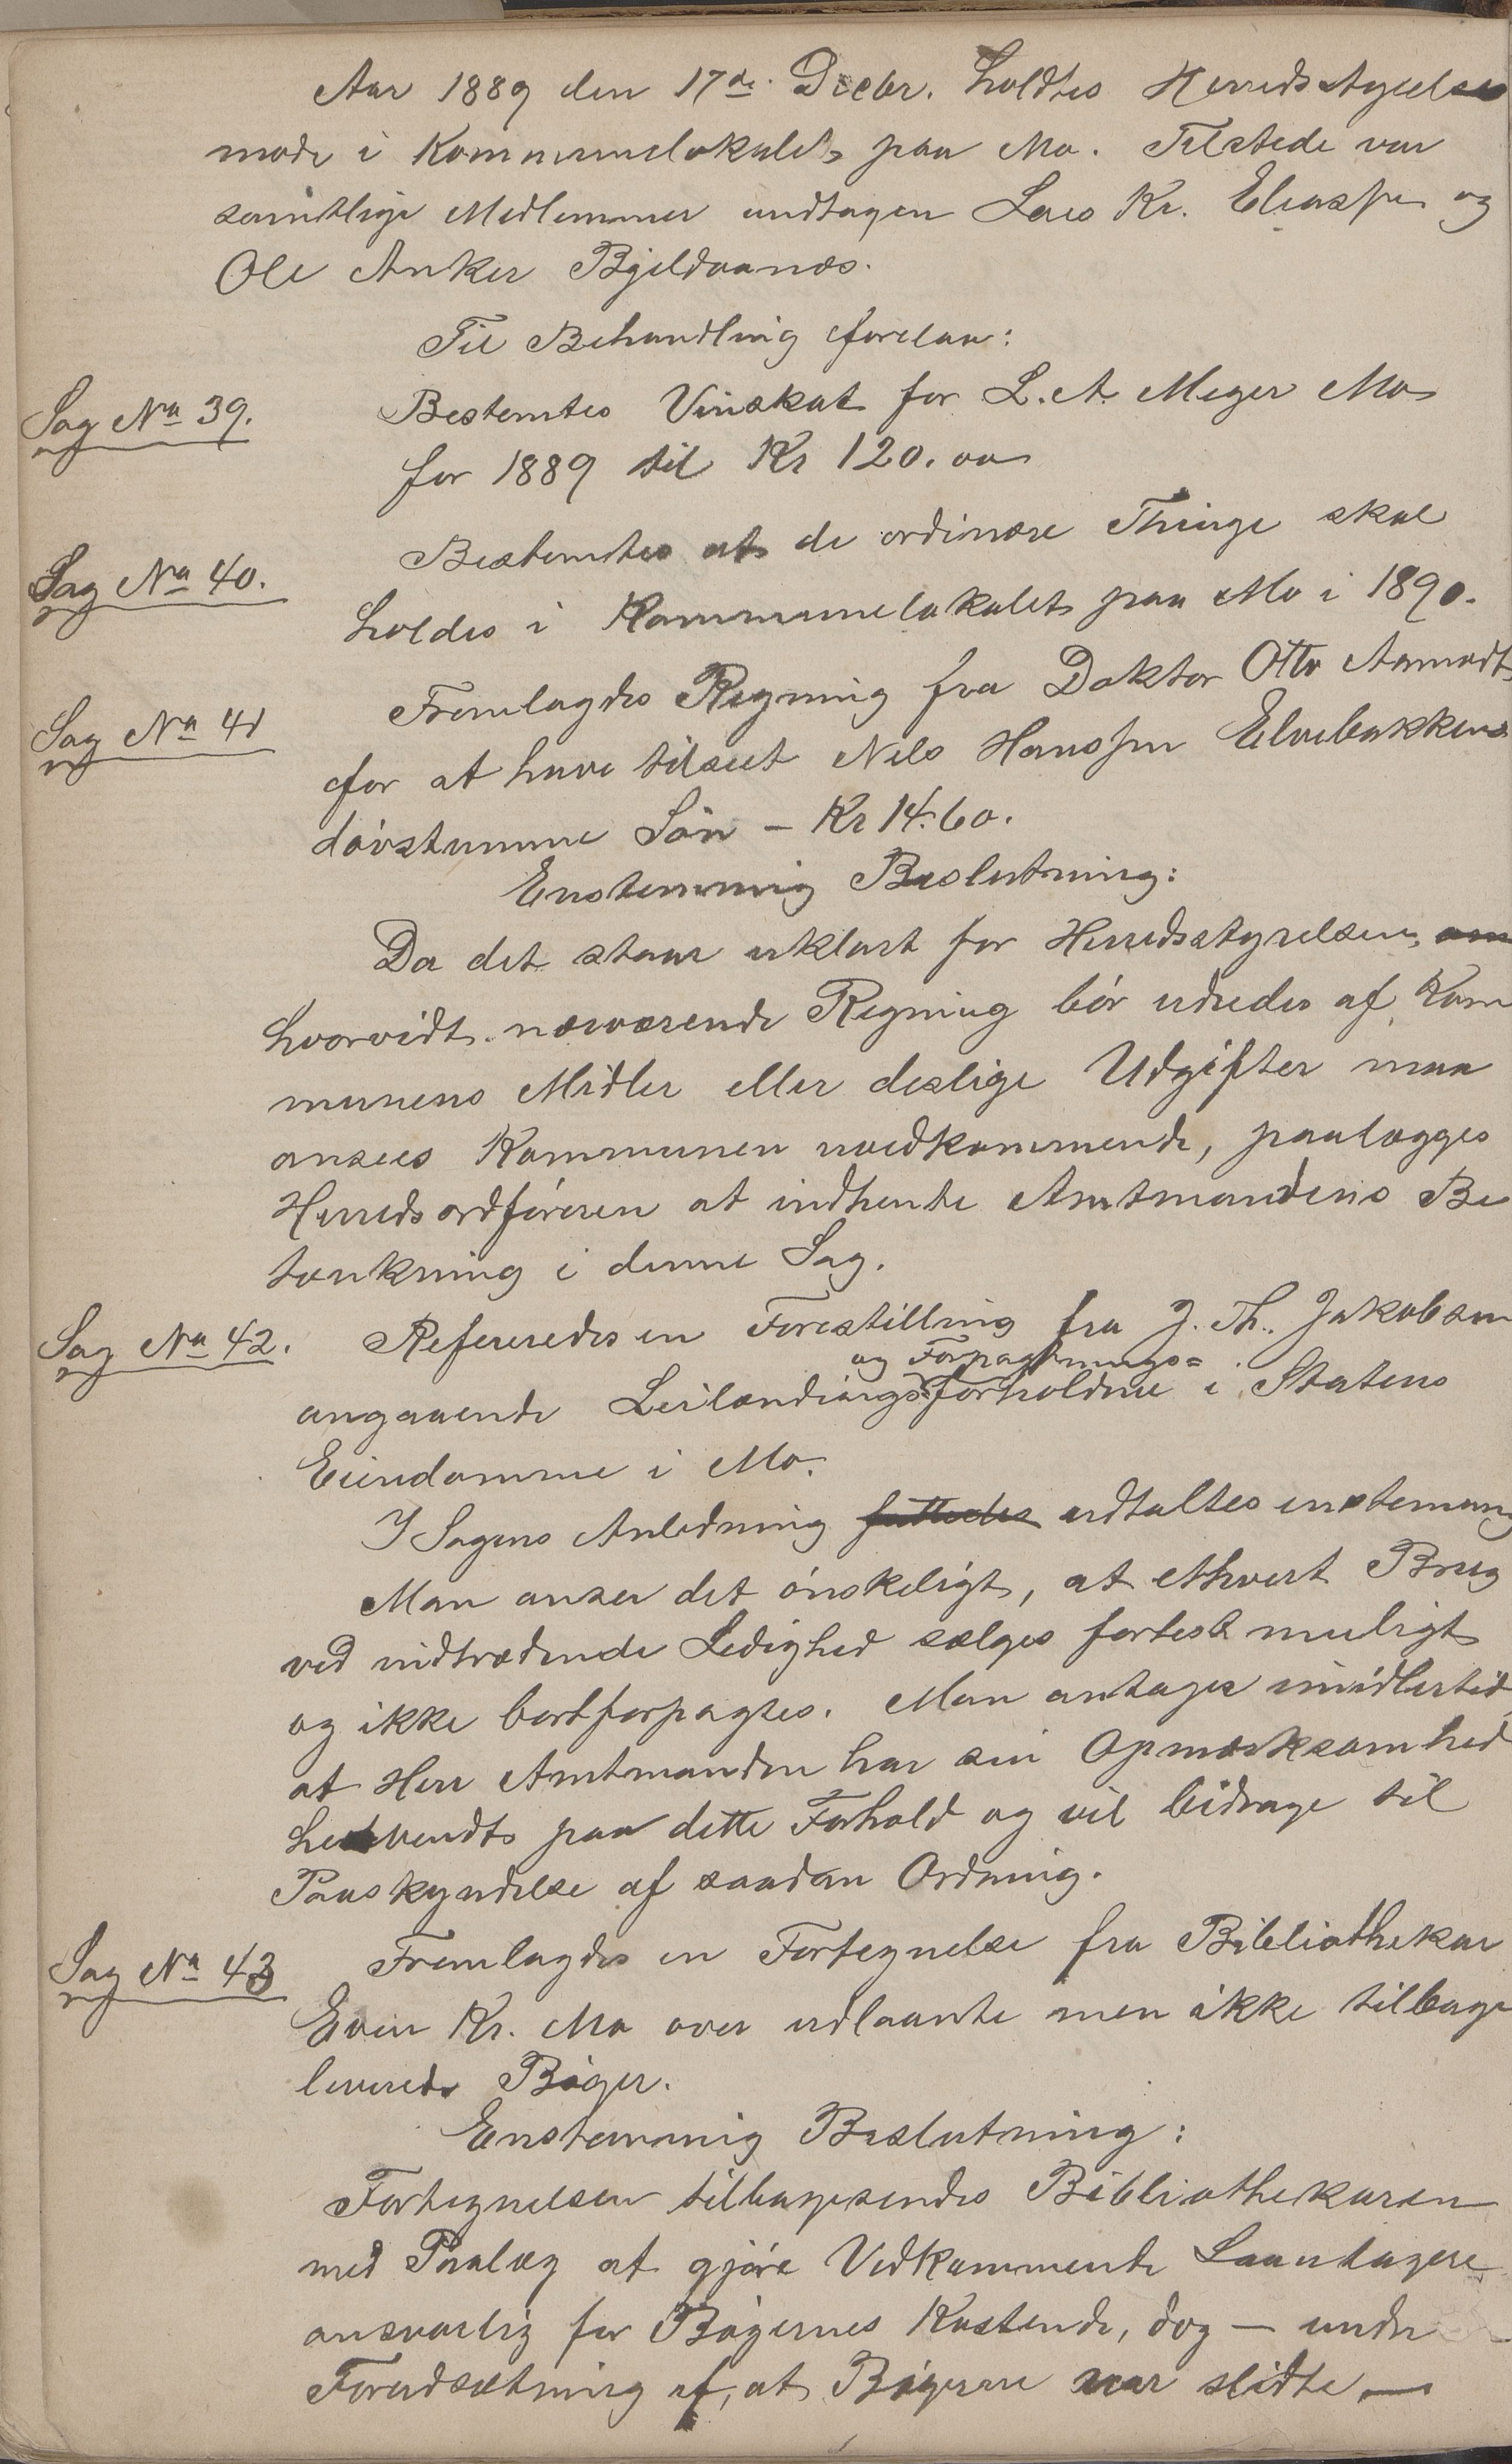 Aar 1889 den 17de Decbr. holdtes Herredsstyrelses
møde i Kommunelokalet paa Mo. Tilstede var
samtlige Medlemmer undtagen Lars Kr. Eliassen og
Ole Anker Bjeldaanæs.
Til Behandling forelaa:
Sag No 39. Bestemtes Vinskat for L. A. Meyer Mo
for 1889 til Kr 120.00
Sag No 40. Bestemtes at de ordinære Thinge skal
holdes i Kommunelokalet paa Mo i 1890.
Sag No 41 Fremlagdes Regning fra Doktor Otto Aanrudt
for at have tilseet Nels Hanssen Elvebakkens
døvstumme Søn – Kr 14.60.
Enstemmig Beslutning:
Da det staar uklart for Herredsstyrelsen, om
hvorvidt nærværende Regning bør udredes af Kom
munens Midler eller deslige Udgifter maa
ansees Kommunen uvedkommende, paalægges
Herredsordføreren at indhente Amtmandens Be
tænkning i denne Sag.
Sag No 42. Refereredes en Forestilling fra J. Th. Jakobsen
og Forpagtnings=
angaaende Leilændingsforholdene i Statens
Eiendomme i Mo.
I Sagens Anledning fattedes udtaltes enstemmig
Man anser det ønskeligt, at ethvert Brug
ved indtrædende Ledighed sælges fortest muligt
og ikke bortforpagtes. Man antager imidlertid
at Herr Amtmanden har sin Opmærksomhed
henvendt paa dette Forhold og vil bidrage til
Paaskyndelse af saadan Ordning.
Sag No 43 Fremlagdes en Fortegnelse fra Bibliothekar
Even Kr. Mo over udlaante men ikke tilbage
leverede Bøger.
Enstemmig Beslutning:
Fortegnelsen tilbagesendes Bibliothekaren
med Paalæg at gjøre Vedkommende Laantagere
ansvarlig for Bøgernes Kostende, dog – under
Forudsætning af, at Bøgerne var slidte –